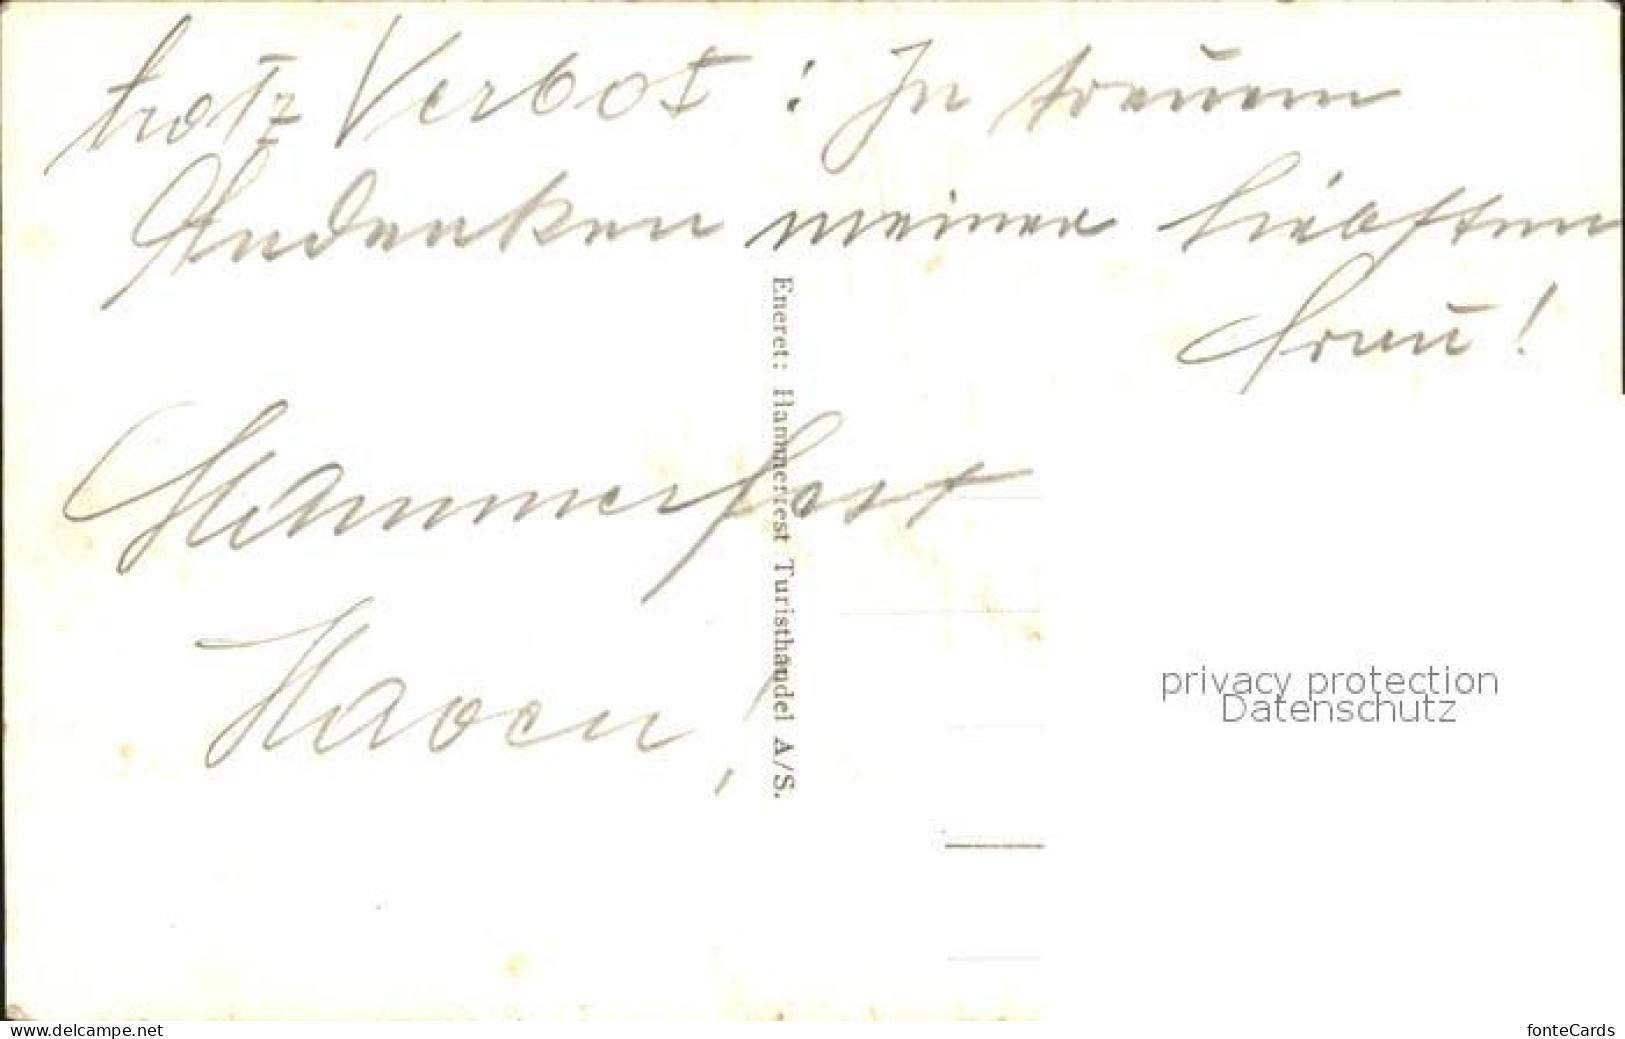 trotz Verbot: In treuem
Andenken meiner liebsten
Frau!
Hammerfest
Haven!
Eneret: Hammerfest Turisthandel A/S.
privacy protection
Datenschutz
www.delcampe.net
fonteCards